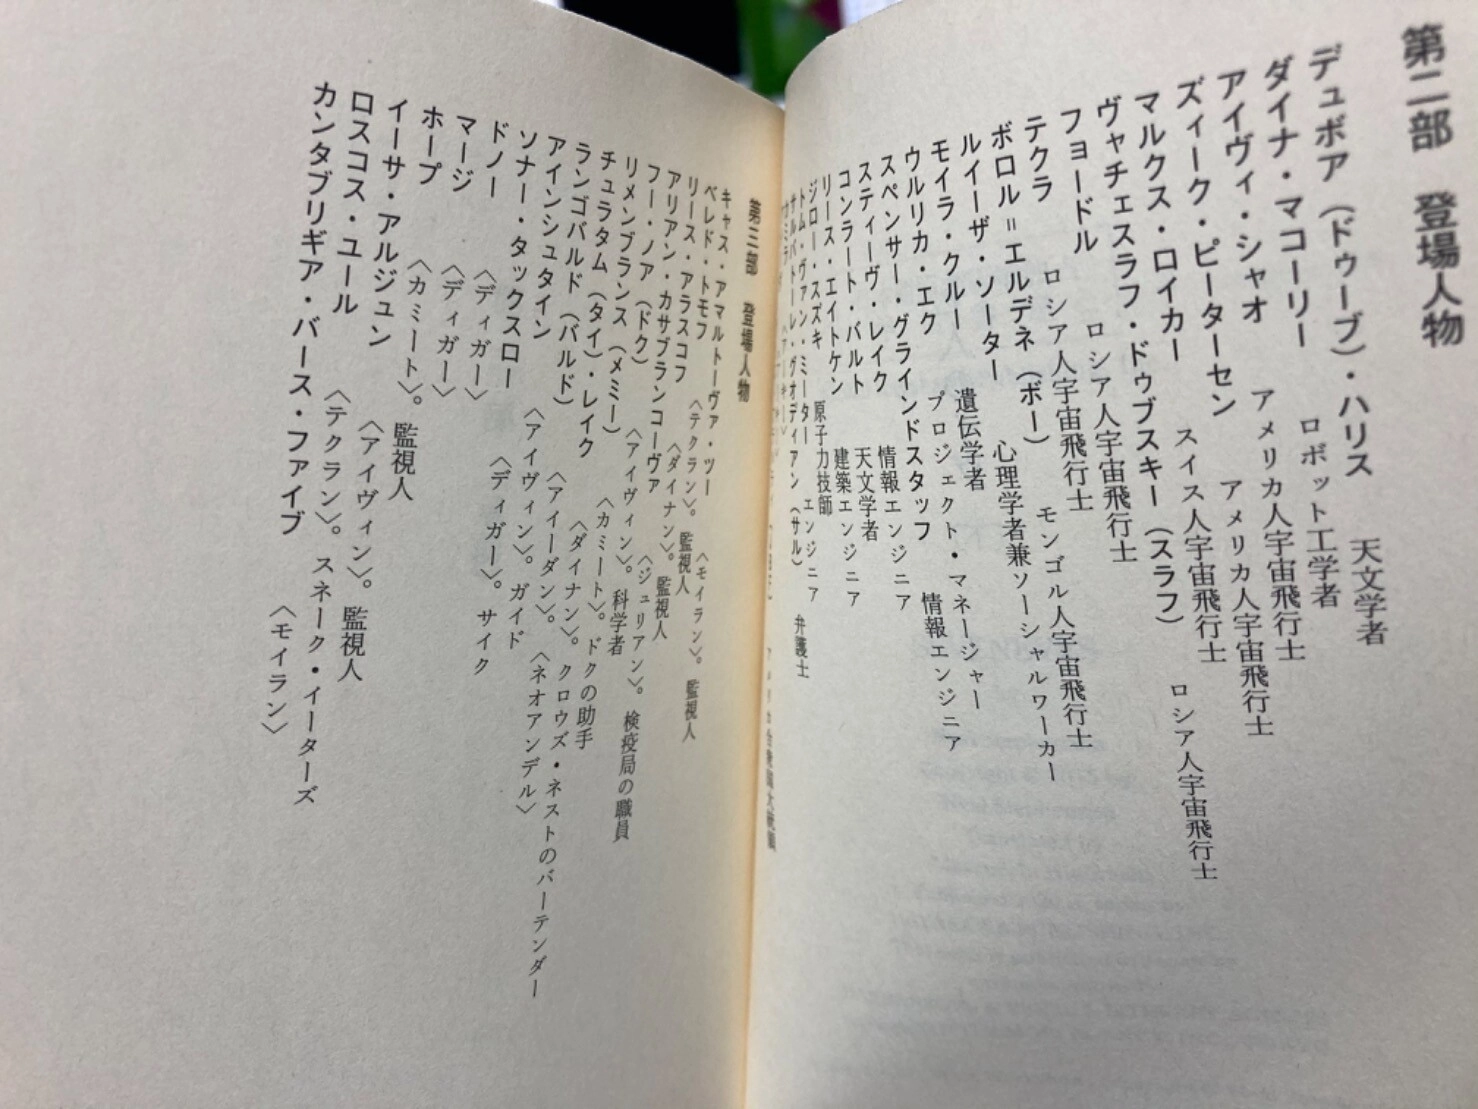 第二部 登場人物
デュボア(ドゥーブ)・ハリス 天文学者
ダイナ・マコーリー ロボット工学者
アイヴィ・シャオ アメリカ人宇宙飛行士
ズィーク・ピーターセン アメリカ人宇宙飛行士
マルクス・ロイカー スイス人宇宙飛行士
ヴャチェスラフ・ドゥブスキー(スラフ) ロシア人宇宙飛行士
フョードル ロシア人宇宙飛行士
テクラ ロシア人宇宙飛行士
ボロル=エルデネ(ボー) モンゴル人宇宙飛行士
ルイーザ・ソーター 心理学者兼ソーシャルワーカー
モイラ・クルー 遺伝学者
ウルリカ・エク プロジェクト・マネージャー
スペンサー・グラインドスタッフ 情報エンジニア
スティーヴ・レイク 情報エンジニア
コンラート・バルト 天文学者
リース・エイトケン 建築エンジニア
ジロー・スズキ 原子力技師
トム・ヴァン・ミーター エンジニア
サルバトーレ・グオディアン(サル) 弁護士
カミラ
第三部 登場人物
キャス・アマルトーヴァ・ツー 〈モイラン〉。監視人
ベレド・トモフ 〈テクラン〉。監視人
リース・アラスコフ 〈ダイナン〉。監視人
アリアン・カサブランコーヴァ 〈ジュリアン〉。検疫局の職員
フー・ノア(ドク) 〈アイヴィン〉。科学者
リメンブランス(メミー) 〈カミート〉。ドクの助手
チュラタム(タイ)・レイク 〈ダイナン〉。クロウズ・ネストのバーテンダー
ランゴバルド(バルド) 〈ネオアンデル〉
アインシュタイン 〈アイーダン〉。
ソナー・タックスロー 〈アイヴィン〉。ガイド
ドノー 〈ディガー〉。サイク
マージ 〈ディガー〉
ホープ 〈ディガー〉
イーサ・アルジュン 〈カミート〉。監視人
ロスコス・ユール 〈アイヴィン〉。監視人
カンタブリギア・バース・ファイブ 〈テクラン〉。スネーク・イーターズ
〈モイラン〉